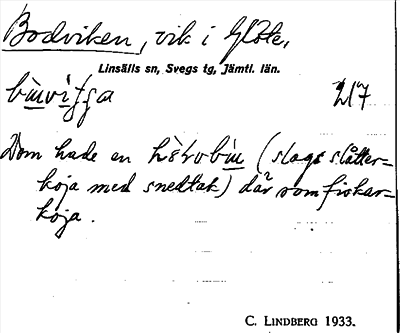 Bodviken, vik i Glöte,
Linsälls sn, Svegs tg, Jämtl. län.
217
Dom hade en (slags slåtter-
koja med snedtak) där som fiskar-
koja.
C. LINDBERG 1933.